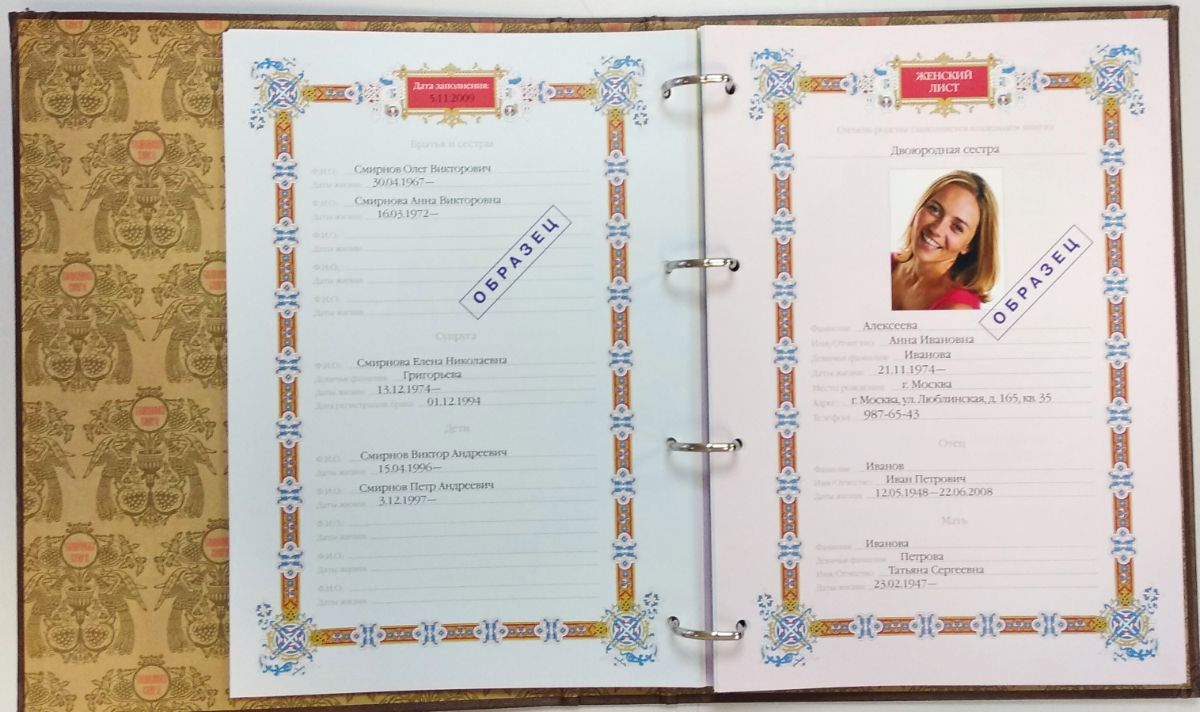 Дата заполнения:
5.11.2009
Братья и сестры
Ф.И.О. Смирнов Олег Викторович
Даты жизни 30.04.1967—
Ф.И.О. Смирнова Анна Викторовна
Даты жизни 16.03.1972—
Ф.И.О.
Даты жизни
Ф.И.О.
Даты жизни
Ф.И.О.
Даты жизни
ОБРАЗЕЦ
Супруга
Ф.И.О. Смирнова Елена Николаевна
Девичья фамилия Григорьева
Даты жизни 13.12.1974—
Дата регистрации брака 01.12.1994
Дети
Ф.И.О. Смирнов Виктор Андреевич
Даты жизни 15.04.1996—
Ф.И.О. Смирнов Петр Андреевич
Даты жизни 3.12.1997—
Ф.И.О.
Даты жизни
Ф.И.О.
Даты жизни
Ф.И.О.
Даты жизни
ЖЕНСКИЙ
ЛИСТ
Степень родства (заполняется владельцем книги)
Двоюродная сестра
ОБРАЗЕЦ
Фамилия Алексеева
Имя/Отчество Анна Ивановна
Девичья фамилия Иванова
Даты жизни 21.11.1974—
Место рождения г. Москва
Адрес г. Москва, ул. Люблинская, д. 165, кв. 35
Телефон 987-65-43
Отец
Фамилия Иванов
Имя/Отчество Иван Петрович
Даты жизни 12.05.1948—22.06.2008
Мать
Фамилия Иванова
Девичья фамилия Петрова
Имя/Отчество Татьяна Сергеевна
Даты жизни 23.02.1947—